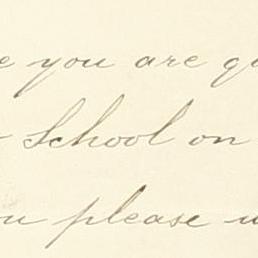 you are
School on
please